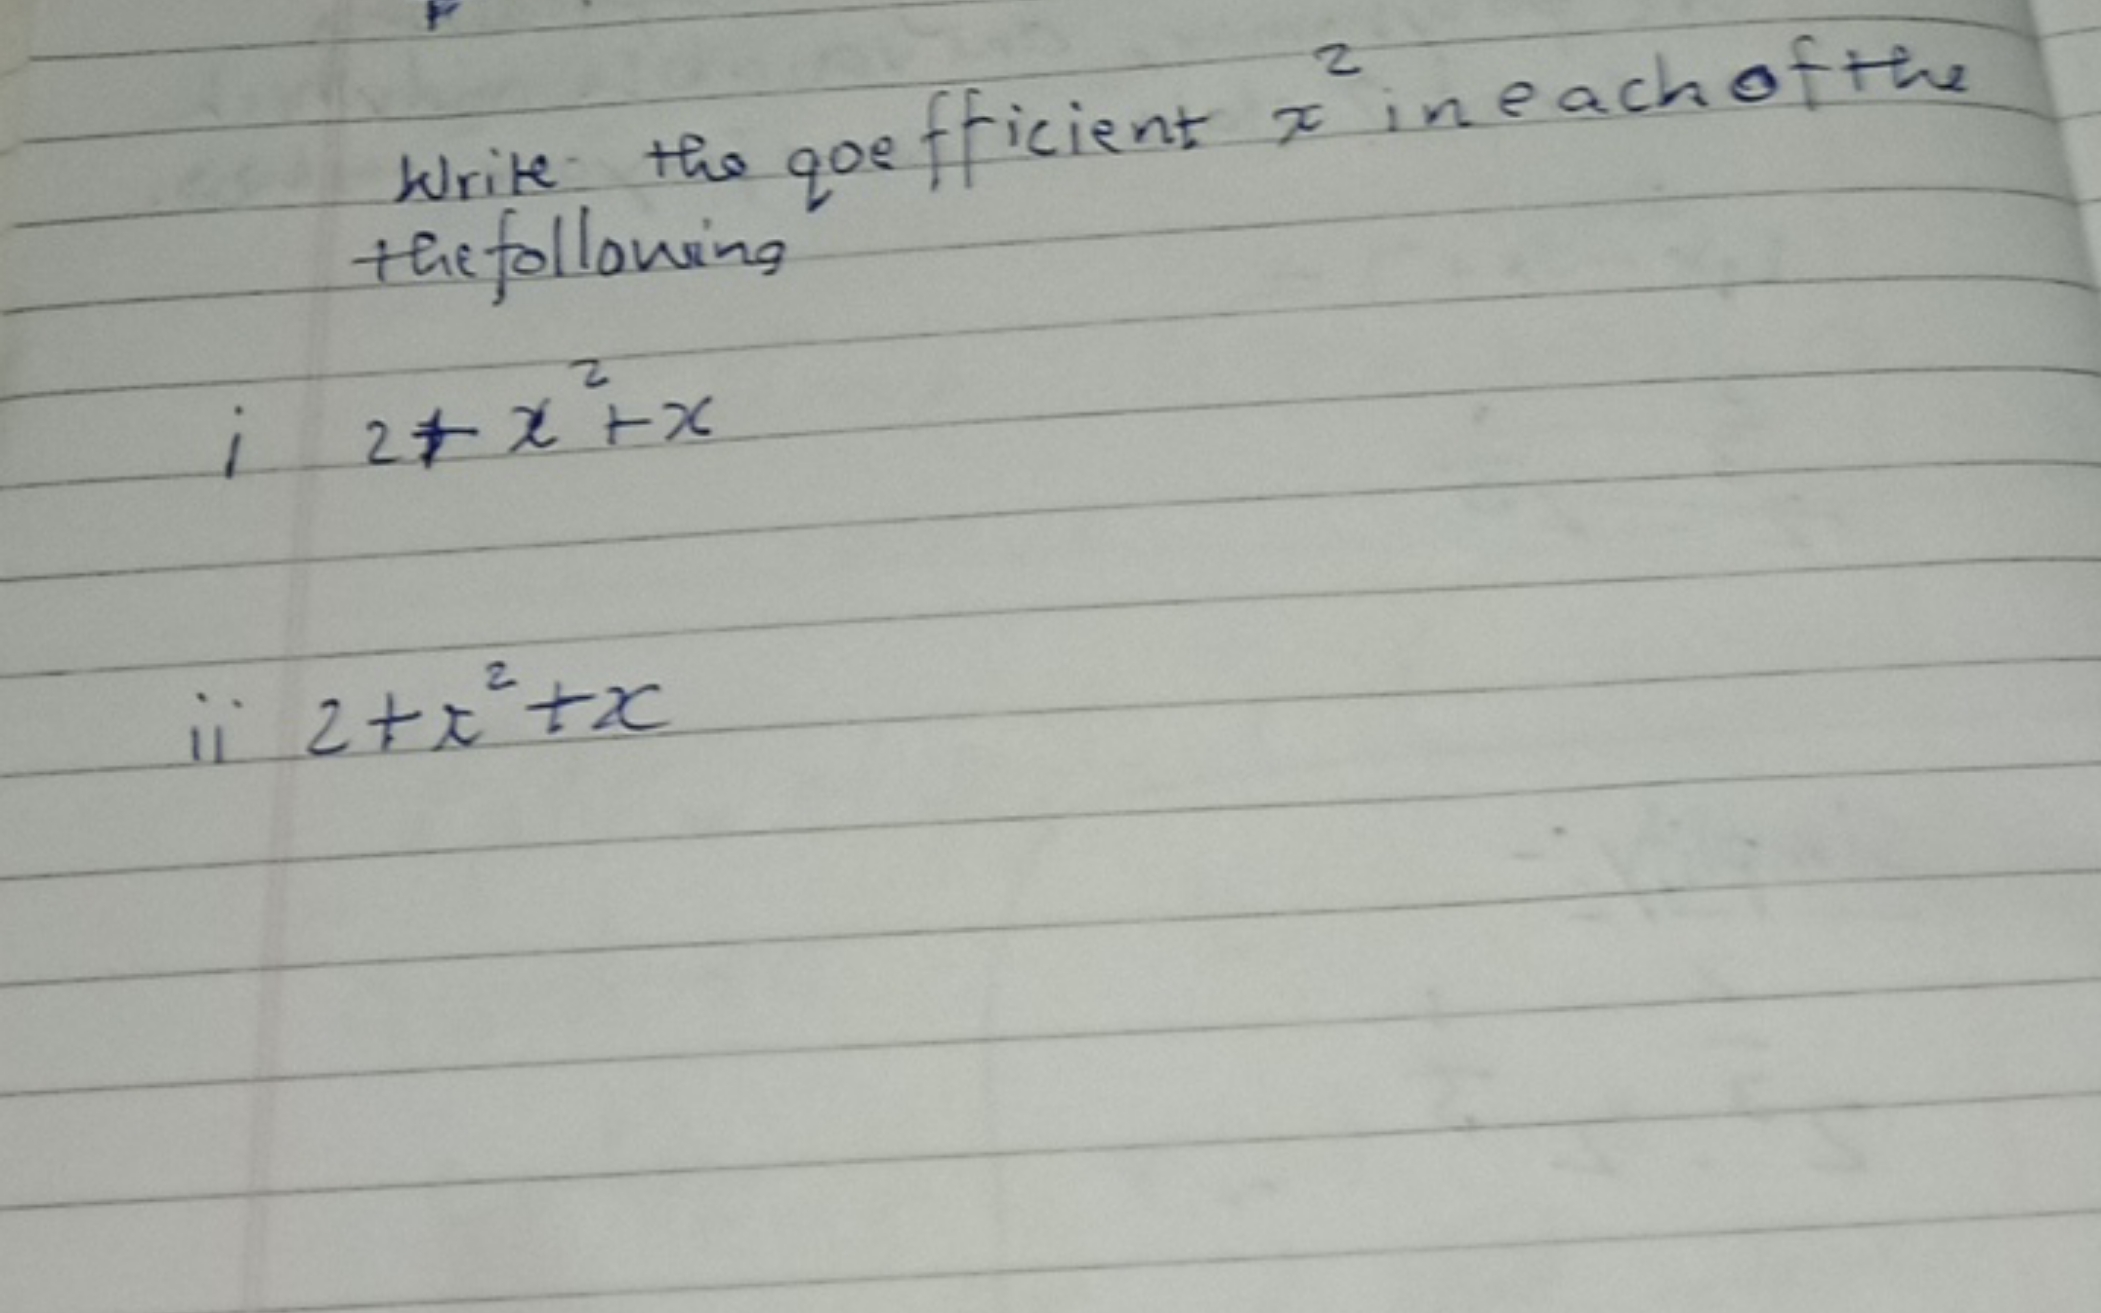 Write the qoefficient x² in each of the
the following
i 2+ x² + x
ii 2+x² +x